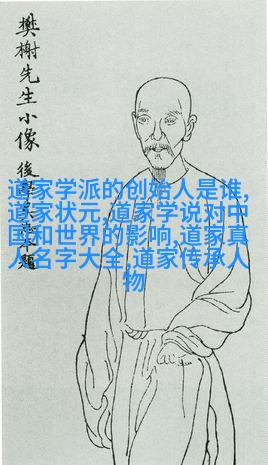 樊榭先生小像
後學
道家学派的创始人是谁,
道家状元,道家学说对中
国和世界的影响,道家真
人名字大全,道家传承人
物